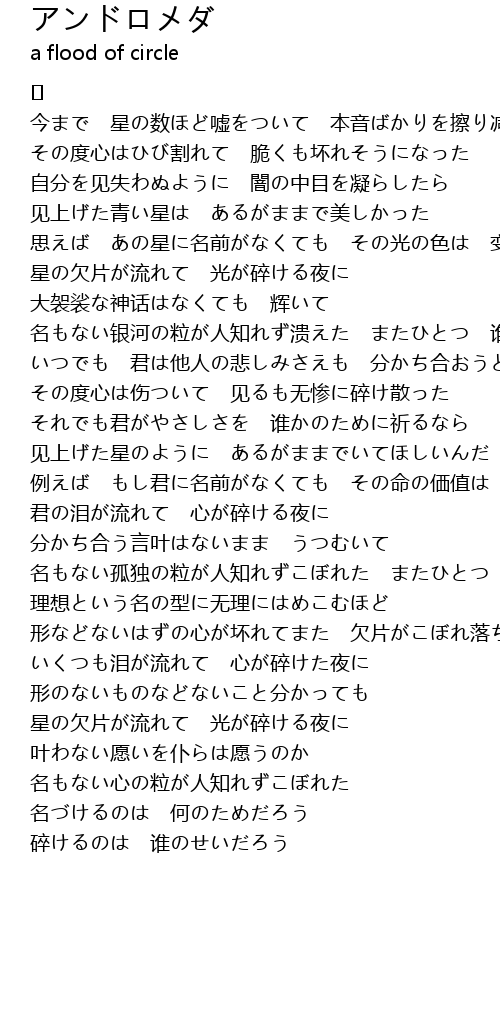 アンドロメダ
a flood of circle
[]
今まで　星の数ほど嘘をついて　本音ばかりを擦り减
その度心はひび割れて　脆くも坏れそうになった
自分を见失わぬように　闇の中目を凝らしたら
见上げた青い星は　あるがままで美しかった
思えば　あの星に名前がなくても　その光の色は　变
星の欠片が流れて　光が碎ける夜に
大袈裟な神话はなくても　辉いて
名もない银河の粒が人知れず溃えた　またひとつ　谁
いつでも　君は他人の悲しみさえも　分かち合おうと
その度心は伤ついて　见るも无惨に碎け散った
それでも君がやさしさを　谁かのために祈るなら
见上げた星のように　あるがままでいてほしいんだ
例えば　もし君に名前がなくても　その命の価值は
君の泪が流れて　心が碎ける夜に
分かち合う言叶はないまま　うつむいて
名もない孤独の粒が人知れずこぼれた　またひとつ
理想という名の型に无理にはめこむほど
形などないはずの心が坏れてまた　欠片がこぼれ落ち
いくつも泪が流れて　心が碎けた夜に
形のないものなどないこと分かっても
星の欠片が流れて　光が碎ける夜に
叶わない愿いを仆らは愿うのか
名もない心の粒が人知れずこぼれた
名づけるのは　何のためだろう
碎けるのは　谁のせいだろう